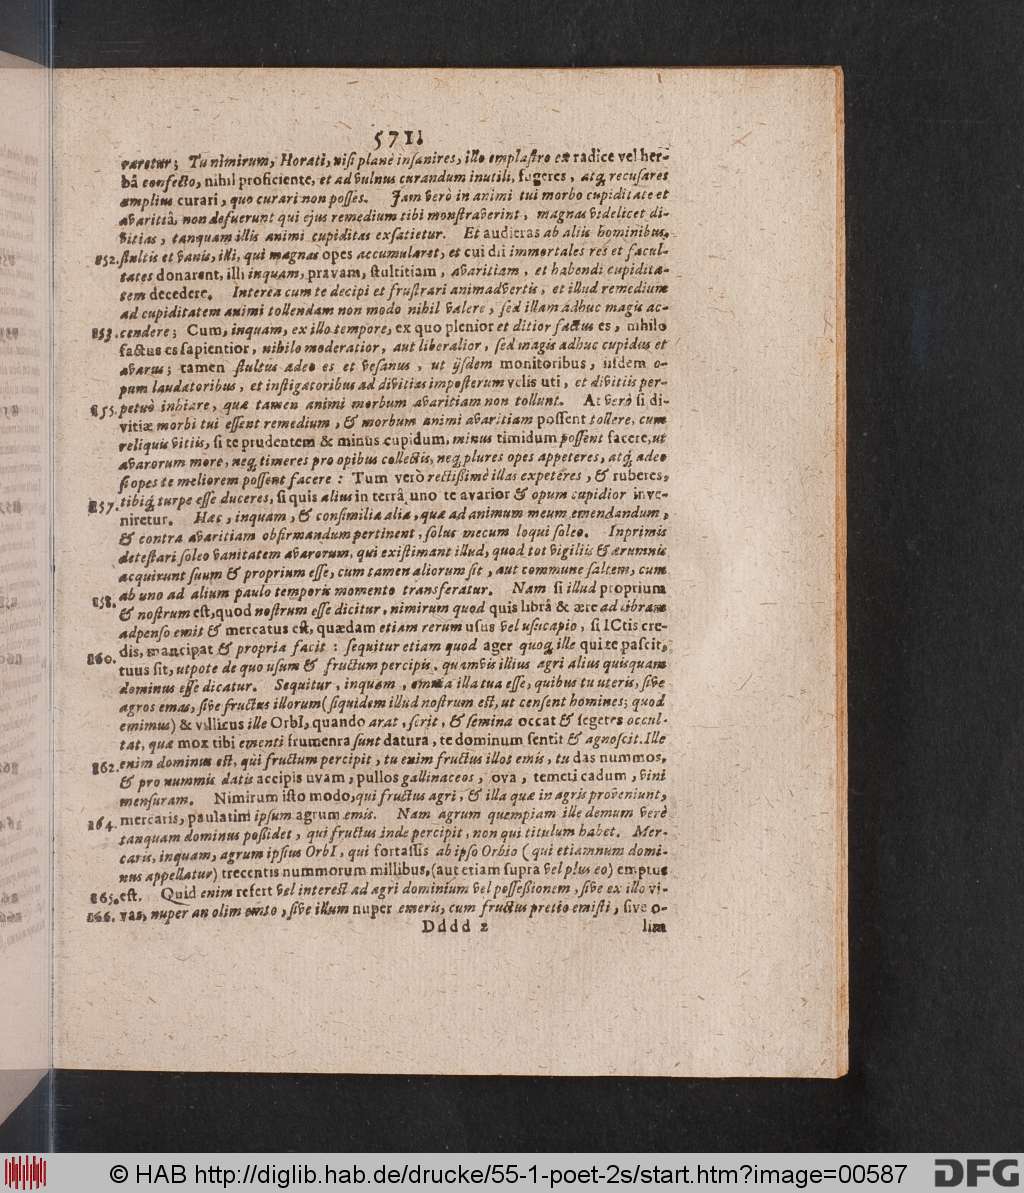 571
raretur; Tu nimirum, Horati, nisi planè insanires, illo emplastro ex radice vel her-
bâ confecto, nihil proficiente, et ad vulnus curandum inutili, fugeres, atq; recusares
amplius curari, quo curari non posses. Jam verò in animi tui morbo cupiditate et
avaritiâ, non defuerunt qui ejus remedium tibi monstraverint, magnas videlicet di-
vitias, tanquam illis animi cupiditas exsatietur. Et audieras ab aliis hominibus,
852. stultis et vanis, illi, qui magnas opes accumularet, et cui dii immortales res et facul-
tates donarent, illi inquam, pravam, stultitiam, avaritiam, et habendi cupidita-
tem decedere. Interea cum te decipi et frustrari animadvertis, et illud remedium
ad cupiditatem animi tollendam non modo nihil valere, sed illam adhuc magis ac-
853. cendere; Cum, inquam, ex illo tempore, ex quo plenior et ditior factus es, nihilo
factus es sapientior, nihilo moderatior, aut liberalior, sed magis adhuc cupidus et
avarus; tamen stultus adeo es et vesanus, ut ijsdem monitoribus, iisdem o-
pum laudatoribus, et instigatoribus ad divitias imposterum velis uti, et divitiis per-
855. petuò inhiare, quæ tamen animi morbum avaritiam non tollunt. At verò si di-
vitiæ morbi tui essent remedium, & morbum animi avaritiam possent tollere, cum
reliquis vitiis, si te prudentem & minus cupidum, minus timidum possent facere, ut
avarorum more, neq; timeres pro opibus collectis, neq; plures opes appeteres, atq; adeo
si opes te meliorem possent facere: Tum verò rectissimè illas expeteres, & ruberes,
857. tibiq; turpe esse duceres, si quis alius in terrâ uno te avarior & opum cupidior inve-
niretur. Hæc, inquam, & consimilia alia, quæ ad animum meum emendandum,
& contra avaritiam obfirmandum pertinent, solus mecum loqui soleo. Inprimis
detestari soleo vanitatem avarorum, qui existimant illud, quod tot vigiliis & ærumnis
acquirunt suum & proprium esse, cum tamen aliorum sit, aut commune saltem, cum
ab uno ad alium paulo temporis momento transferatur. Nam si illud proprium
858. & nostrum est, quod nostrum esse dicitur, nimirum quod quis librâ & ære ad libram
adpenso emit & mercatus est, quædam etiam rerum usus vel usucapio, si ICtis cre-
dis, mancipat & propria facit: sequitur etiam quod ager quoq; ille qui te pascit,
860. tuus sit, utpote de quo usum & fructum percipis, quamvis illius agri alius quisquam
dominus esse dicatur. Sequitur, inquam, omnia illa tua esse, quibus tu uteris, sive
agros emas, sive fructus illorum (siquidem illud nostrum est, ut censent homines; quod
emimus) & villicus ille OrbI, quando arat, serit, & semina occat & segetes occul-
tat, quæ mox tibi ementi frumenta sunt datura, te dominum sentit & agnoscit. Ille
862. enim dominus est, qui fructum percipit, tu enim fructus illos emis, tu das nummos,
& pro nummis datis accipis uvam, pullos gallinaceos, ova, temeti cadum, vini
mensuram. Nimirum isto modo, qui fructus agri, & illa quæ in agris proveniunt,
864. mercaris, paulatim ipsum agrum emis. Nam agrum quempiam ille demum verè
tanquam dominus possidet, qui fructus inde percipit, non qui titulum habet. Mer-
caris, inquam, agrum ipsius OrbI, qui fortassis ab ipso Orbio (qui etiamnum domi-
nus appellatur) trecentis nummorum millibus, (aut etiam supra vel plus eo) emptus
865. est. Quid enim refert vel interest ad agri dominium vel possessionem, sive ex illo vi-
866. vas, nuper an olim emto, sive illum nuper emeris, cum fructus pretio emisti, sive o-
Dddd 2 lim
© HAB http://diglib.hab.de/drucke/55-1-poet-2s/start.htm?image=00587 DFG